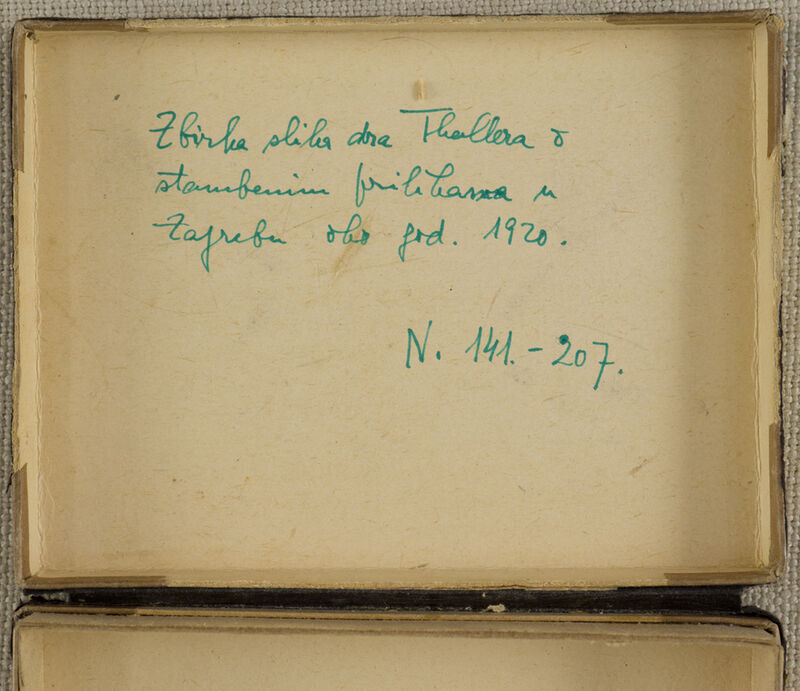 Zbirka slika dra Thallera o
stambenim prilikama u
Zagrebu oko god. 1920.
N. 141.-207.